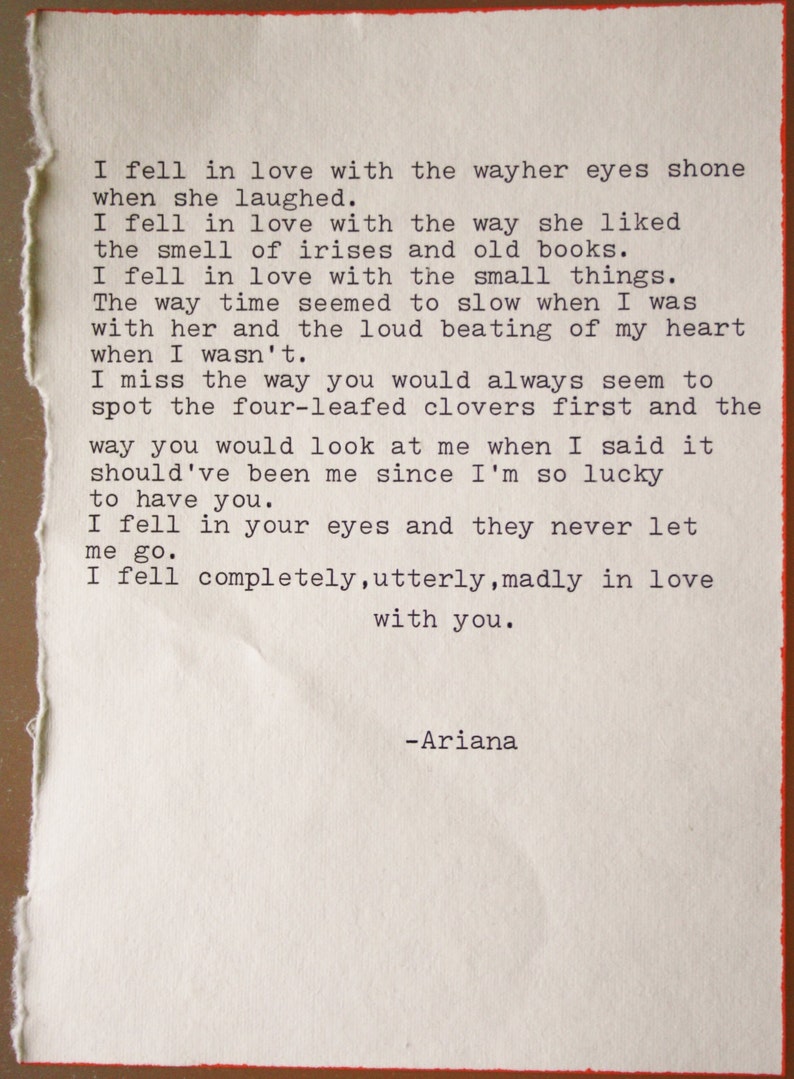 I fell in love with the wayher eyes shone
when she laughed.
I fell in love with the way she liked
the smell of irises and old books.
I fell in love with the small things.
The way time seemed to slow when I was
with her and the loud beating of my heart
when I wasn't.
I miss the way you would always seem to
spot the four-leafed clovers first and the
way you would look at me when I said it
should've been me since I'm so lucky
to have you.
I fell in your eyes and they never let
me go.
I fell completely,utterly,madly in love
with you.
-Ariana